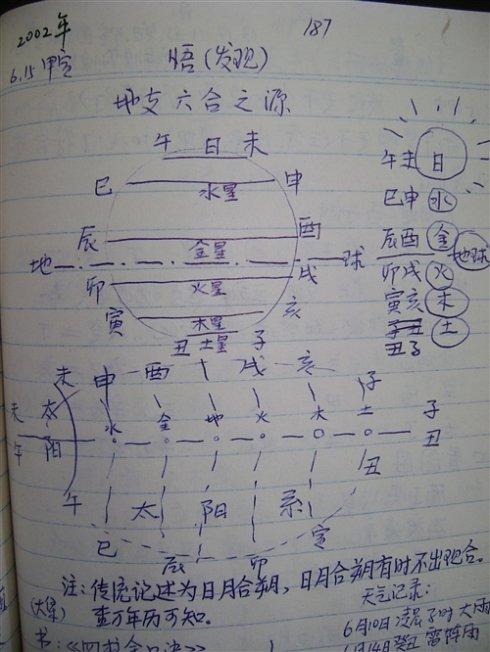 2002年
187
6.15 甲寅 悟(发现)
地支六合之源
午 日 未
巳 水星 申
辰 金星 酉
地 球
卯 火星 戌
寅 木星 亥
丑 土星 子
午未 日
巳申 水
辰酉 金
地球
卯戌 火
寅亥 木
子丑
丑子 土
未 申 酉 戌 亥 子
未 太 水 金 地 火 木 土 子
午 阳 丑
午 太 阳 系 丑
巳 辰 卯 寅
注:传统记述为日月合朔,日月合朔有时不出现合。
查万年历可知。
天气记录:
6月10日 子时 大雨
6月14癸丑 雷阵雨